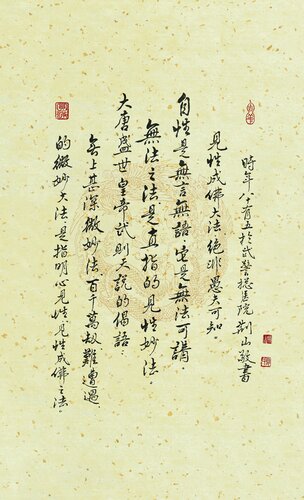 時年八十有五於武警總医院荆山敬書
見性成佛大法絕非愚夫可知。
自性是無言無語，它是無法可講。
無法之法是直指的見性妙法。
大唐盛世皇帝武則天說的偈語：
無上甚深微妙法百千萬劫難遭遇
的微妙大法是指明心見性，見性成佛之法。